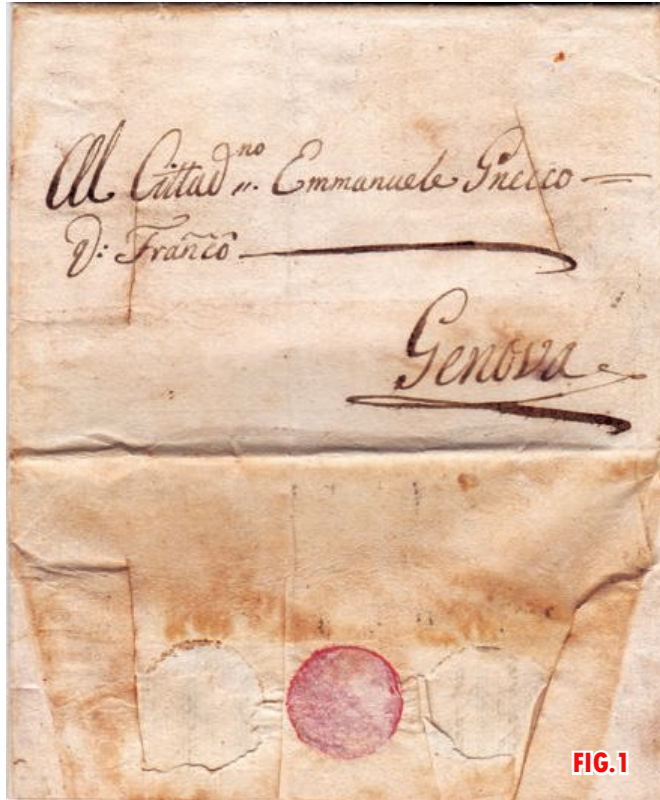 Al Cittad.no Emmanuele Gnecco
Q: Franco
Genova
FIG.1